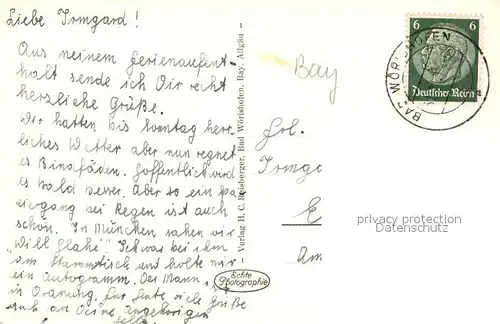 Liebe Irmgard!
Aus meinem Ferienaufent-
halt sende ich Dir recht
herzliche Grüße.
Wir hatten bis Sonntag herr-
liches Wetter aber nun regnet
es Bindfäden. Hoffentlich wird
es bald besser. Aber so ein Spa-
ziergang bei Regen ist auch
schön. In München sahen wir
"Will Glahé". Ich was bei ihm
am Stammtisch und holte mir
ein Autogramm. Der Mann ist
in Ordnung. Für heute viele Grüße
auch an Deine Angehörigen
Verlag H. C. Reisberger, Bad Wörishofen, Bay. Allgäu -
Echte
Photographie
6 6
Deutsches Reich
BAD WÖRISHOFEN
Bay
Frl.
Irmga
E
Am
privacy protection